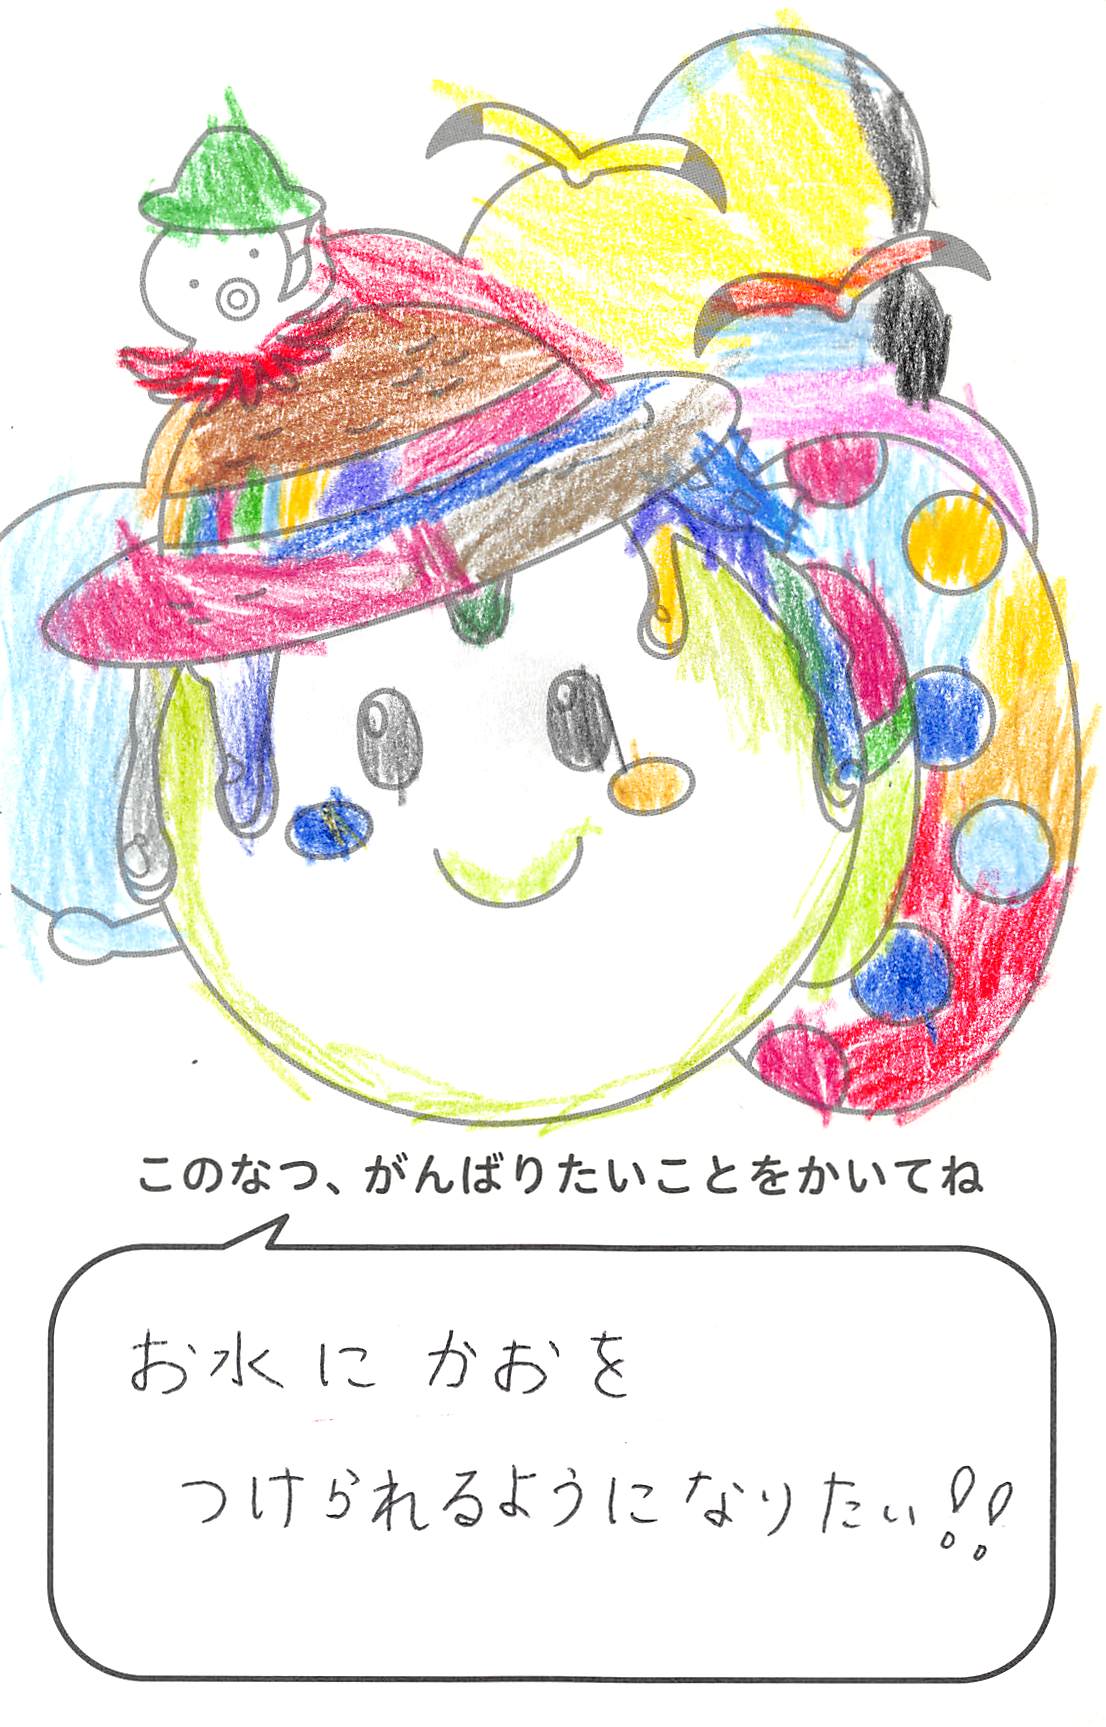 このなつ、がんばりたいことをかいてね
お水に かおを
つけられるようになりたい!!